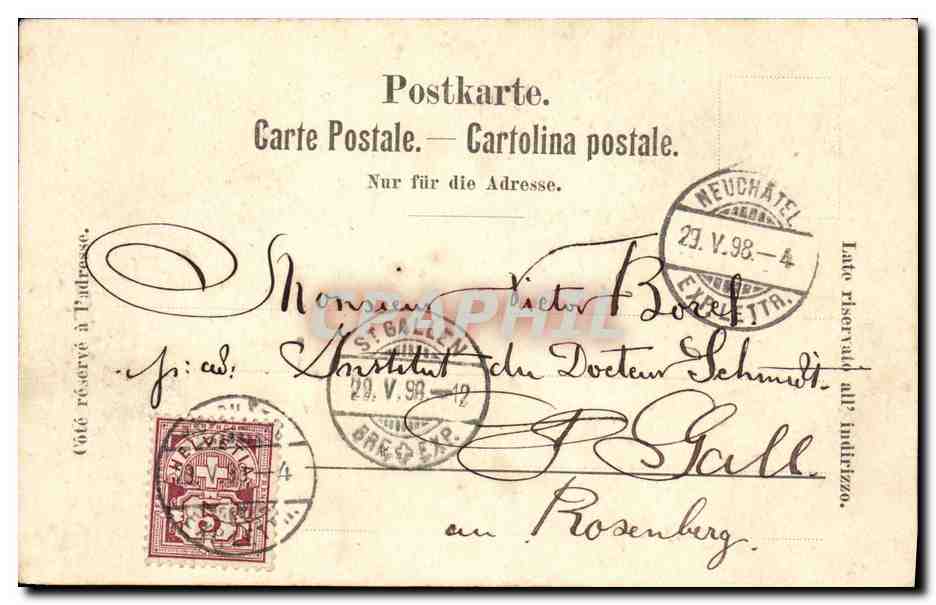 Postkarte.
Carte Postale. — Cartolina postale.
Nur für die Adresse.
Côté réservé à l'adresse.
Lato riservato all' indirizzo.
NEUCHÂTEL
29. V. 98. – 4
EXP. LETTR.
Monsieur Victor Borel
p: ad: Institut du Docteur Schmidt.
St Gall.
au Rosenberg.
ST. GALLEN
29. V. 98. – 12
BRF. EXP.
HELVETIA
5
CPAPHIL